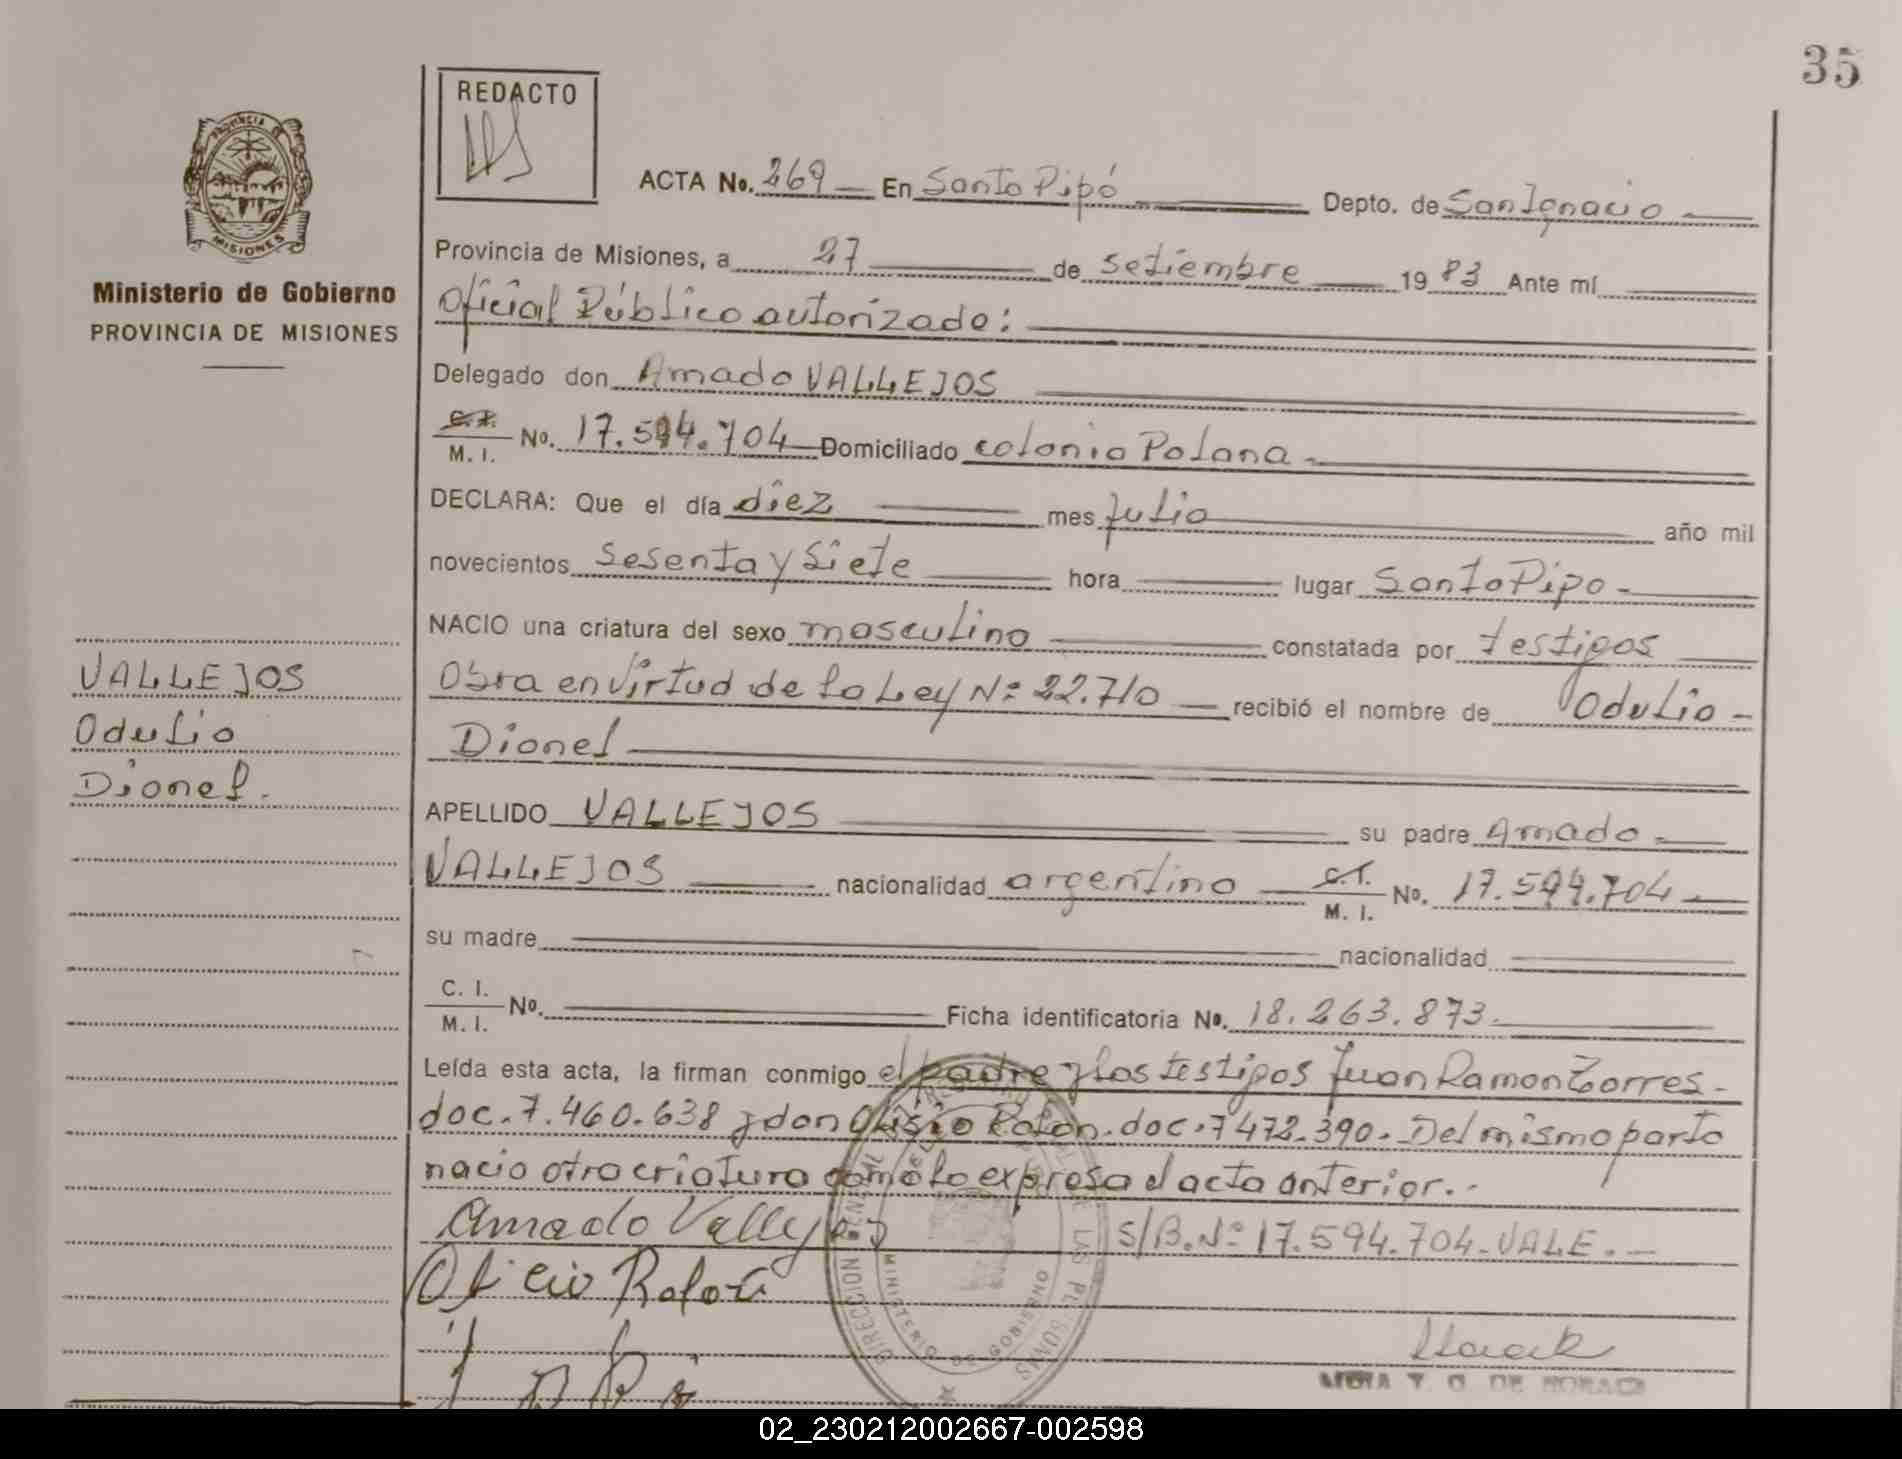 35
REDACTO
PROVINCIA DE
MISIONES
Ministerio de Gobierno
PROVINCIA DE MISIONES
ACTA No. 269 En Santo Pipó Depto. de San Ignacio
Provincia de Misiones, a 27 de setiembre 1983 Ante mí
Oficial Público autorizado:
Delegado don Amado VALLEJOS
C.I. M. I. No. 17.594.704 Domiciliado colonia Polana
DECLARA: Que el día diez mes julio año mil
novecientos sesenta y siete hora lugar Santo Pipo
NACIO una criatura del sexo masculino constatada por testigos
Obra en virtud de la Ley Nº 22.710 recibió el nombre de Odulio
Dionel
VALLEJOS
Odulio
Dionel.
APELLIDO VALLEJOS su padre Amado
VALLEJOS nacionalidad argentino C.I. M. I. No. 17.594.704
su madre nacionalidad
C. I. M. I. No. Ficha identificatoria No. 18.263.873.
Leída esta acta, la firman conmigo el padre y los testigos Juan Ramon Torres
doc. 7.460.638 y don Rolon. doc. 7472.390. Del mismo parto
nacio otra criatura como lo expresa el acta anterior.
Amado Vallejos S/B. Nº 17.594.704. VALE.
Rolon
DIRECCION GENERAL DE LAS PERSONAS
MINISTERIO DE GOBIERNO
02_230212002667-002598